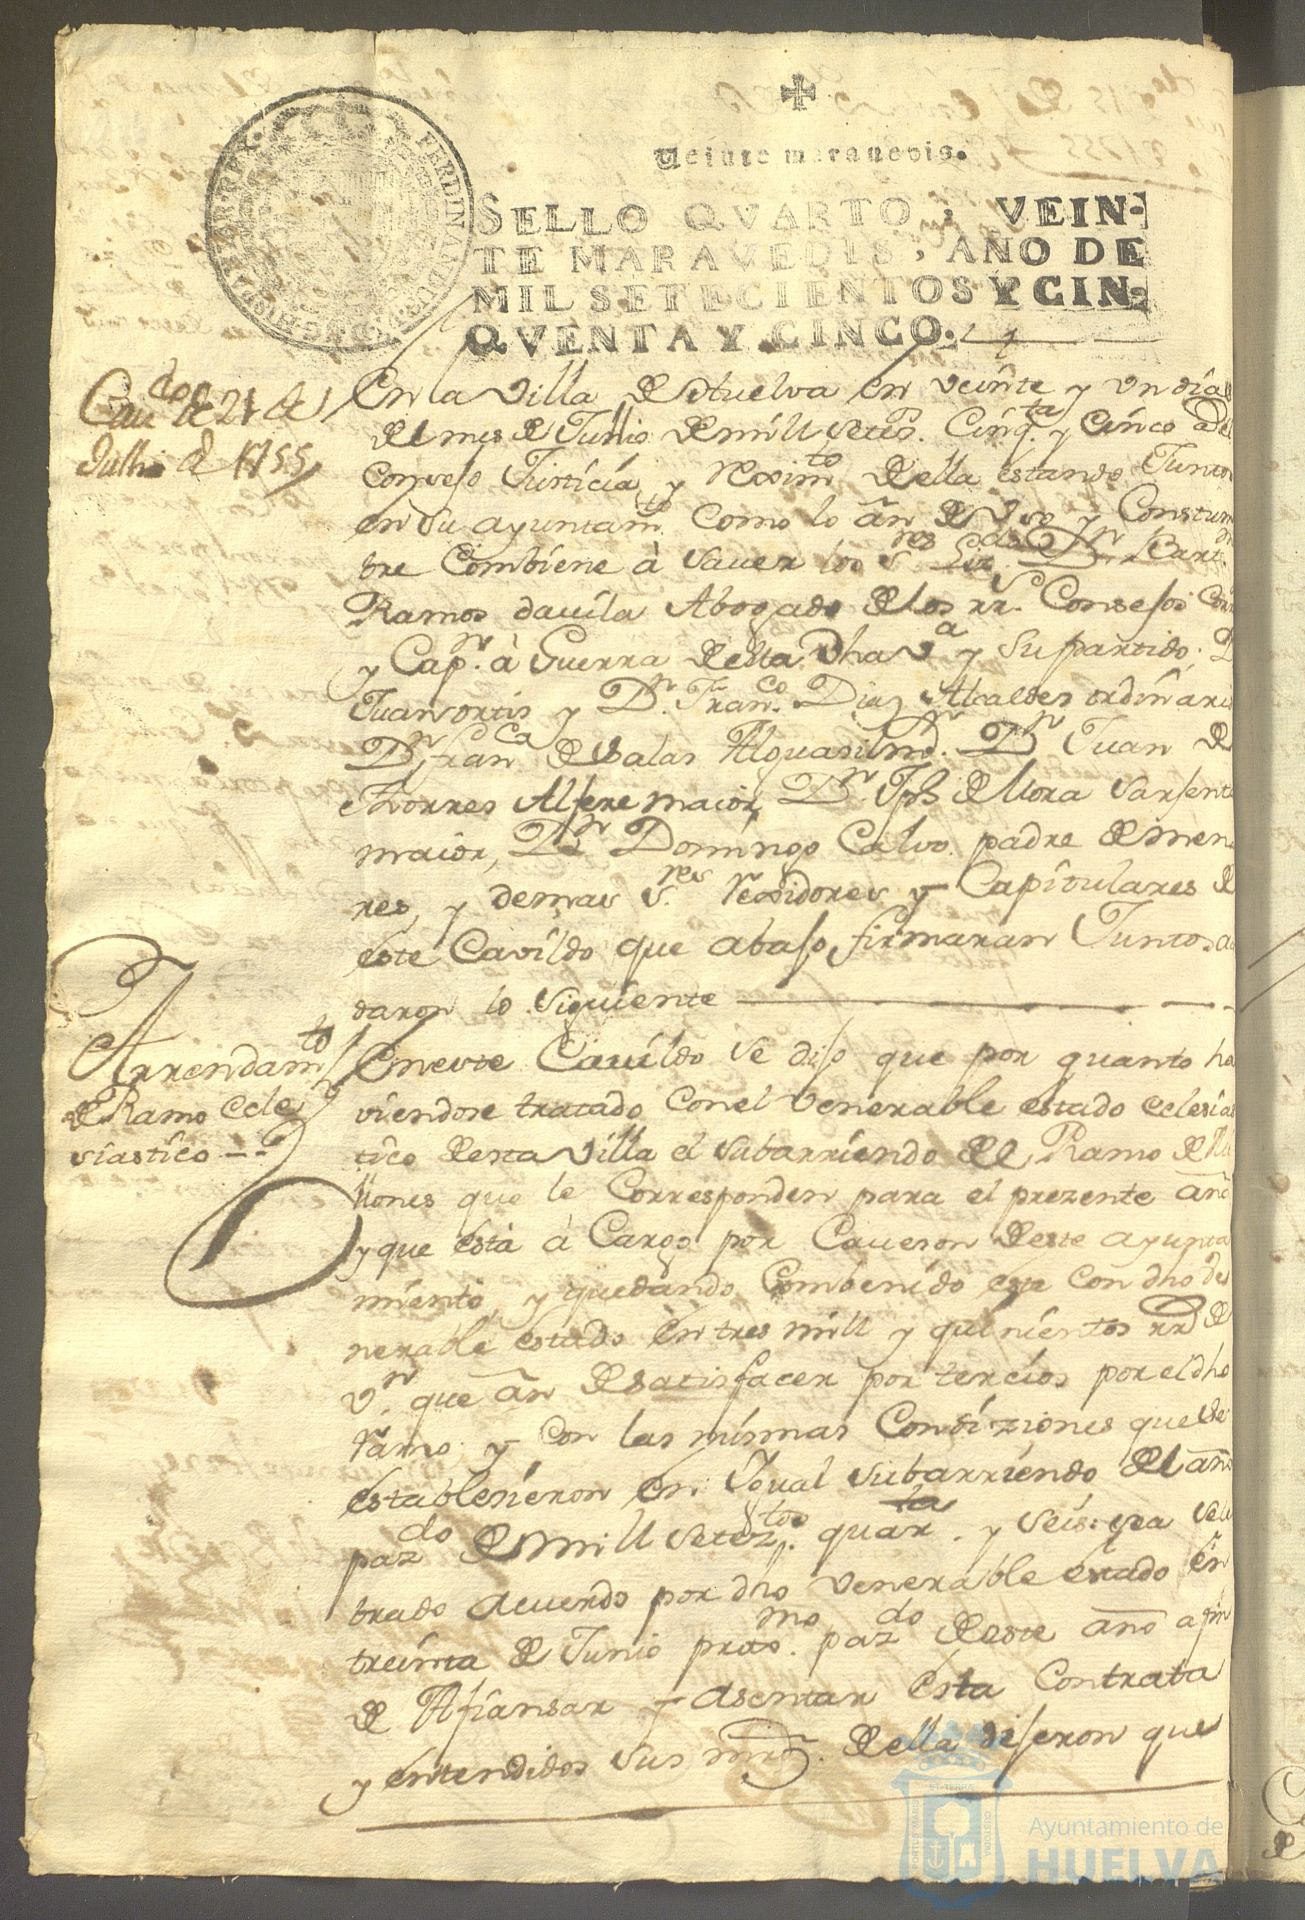 Veinte marauedis.
SELLO QVARTO, VEIN-
TE MARAVEDIS, AÑO DE
MIL SETECIENTOS Y CIN-
QVENTA Y CINCO.
FERDINANDUS HISPANIAR REX
Cau.do de 21 de
Julho de 1755
En la Villa de Huelva en veinte y un dias
del mes de Junio de mill setes. Cinq.ta y Cinco
Consejo Justicia y Reximto della estando Junto
en su ayuntam.to como lo an de Uso y Constum
bre Combiene à saver los S.res Dn
Ramos davila Abogado de los rr.s Consejos
y Cap.n à Guerra desta dha V.a y su partido
Juan ortis y D.n Fran.co Diaz Alcaldes ordinari
D.n Fran.co de salas Alguasil m.r D.n Juan de
thorres Alfere maior, D.n Jph de Mora Sarjent
maior, D.n Domingo Calvo padre de meno
res, y demas S.res Rexidores y Capitulares de
este Cavildo que abajo firmaran Juntos a
daron lo siguiente
Arrendam.to
de Ramo Ecle
siastico
En este Cavildo se dijo que por quanto ha
viendose tratado con el Venerable estado eclesias
tico desta Villa el subarriendo del Ramo de Mi
llones que le Corresponden para el prezente año
y que està à Cargo por Caveson deste ayunta
miento, y quedando Combenido este con dho Ve
nerable estado en tres mill y quinientos rr.s de
v.n que an de satisfacer por tercios por el dho
ramo y con las mismas Condiziones que se
establesieron en Igual subarriendo del año
paz.do de mill setez.tos quar.ta y seis
brado acuerdo por dho venerable estado en
treinta de Junio proxo.mo paz.do deste año a fin
de Afiansar y asentar esta Contrata
y entendidos sus mrds. della dijeron que
Ayuntamiento de
HUELVA